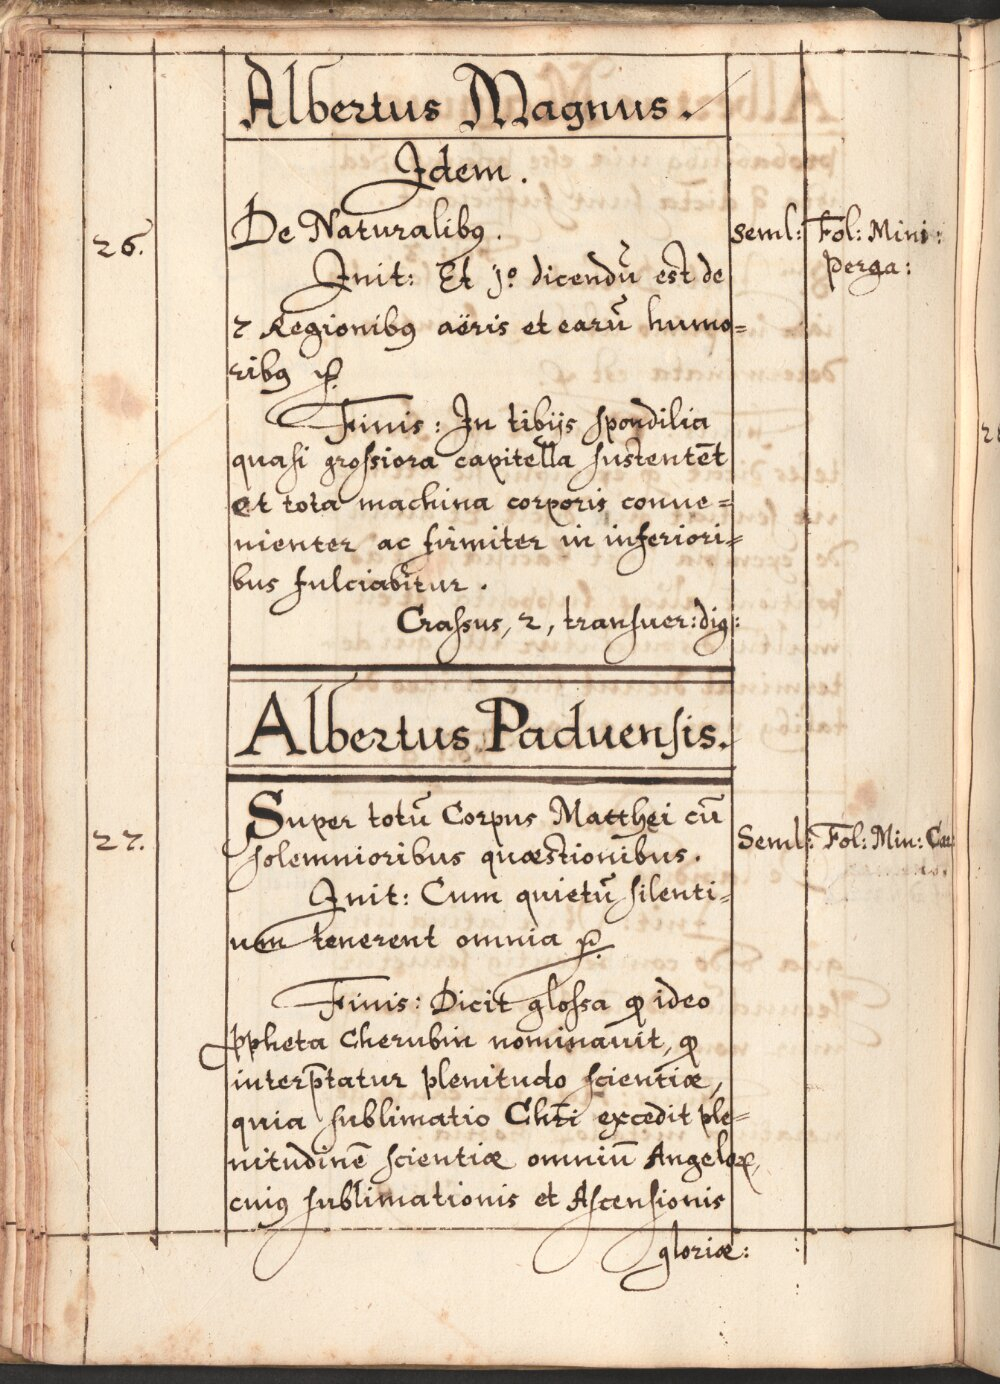 Albertus Magnus.
Idem.
26.
De Naturalibꝰ.
seml: Fol: Mini:
perga:
Init: Et jº dicendū est de
2 Regionibꝰ aëris et earū humo=
ribꝰ
Finis: In tibijs spondilia
quasi grossiora capitella sustentēt
Et tota machina corporis conue=
nienter ac firmiter in inferiori=
bus fulciabitur.
Crassus, 2, transuer: dig:
Albertus Paduensis.
27.
Super totū Corpus Matthei cū
solemnioribus quæstionibus.
Seml: Fol: Min:
Init: Cum quietū silenti=
um tenerent omnia
Finis: Dicit glossa ꝙ ideo
ꝓpheta Cherubin nominauit, ꝙ
interp̄tatur plenitudo scientiæ,
quia sublimatio Chr̄i excedit ple=
nitudinē scientiæ omniū Angeloꝝ,
cuiꝰ sublimationis et Ascensionis
gloriæ: